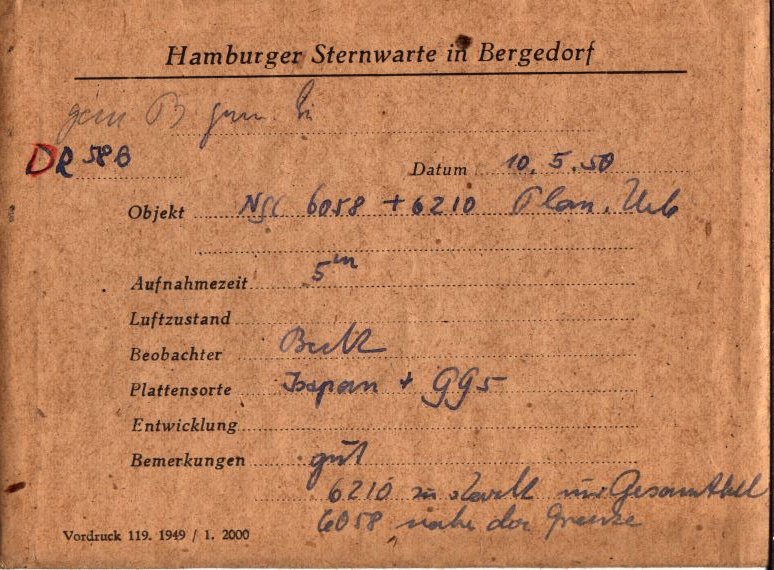 Hamburger Sternwarte in Bergedorf
DR 58B
Datum 10. 5. 50
Objekt NGC 6058 + 6210 Plan.
Aufnahmezeit 5m
Luftzustand
Beobachter
Plattensorte + GG5
Entwicklung
Bemerkungen gut
6210 zu stark nur
6058 nahe der Grenze
Vordruck 119. 1949 / 1. 2000